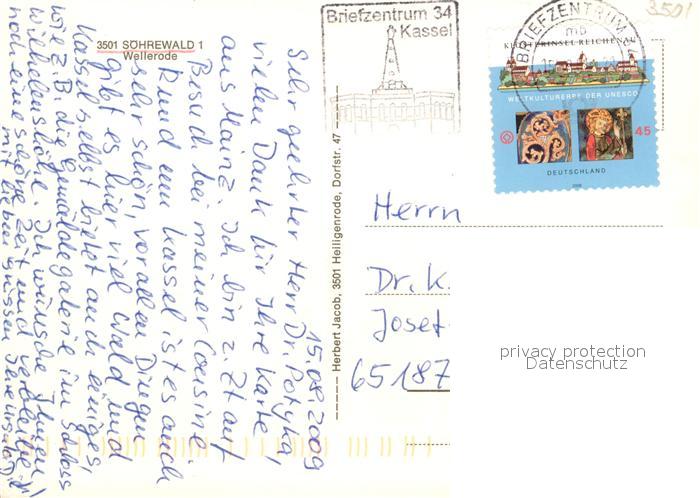 3501 SÖHREWALD 1
Wellerode
Briefzentrum 34
Kassel
BRIEFZENTRUM 34
mb
3501
KLOSTERINSEL REICHENAU
WELTKULTURERBE DER UNESCO
45
DEUTSCHLAND
2008
15.08.2009
Sehr geehrter Herr Dr. Potyka,
vielen Dank für Ihre Karte
aus Mainz. Ich bin z. Zt auf
Besuch bei meiner Cousine.
Rund um Kassel ist es auch
sehr schön, vor allen Dingen
gibt es hier viel Wald und
Kassel selbst bietet auch einiges,
wie z.B. die Gemäldegalerie im Schloss
Wilhelmshöhe. Ich wünsche Ihnen
noch eine schöne Zeit und verbleibe
mit lieben Grüssen
Herbert Jacob, 3501 Heiligenrode, Dorfstr. 47
Herrn
Dr. K.
Josef-
65187
privacy protection
Datenschutz